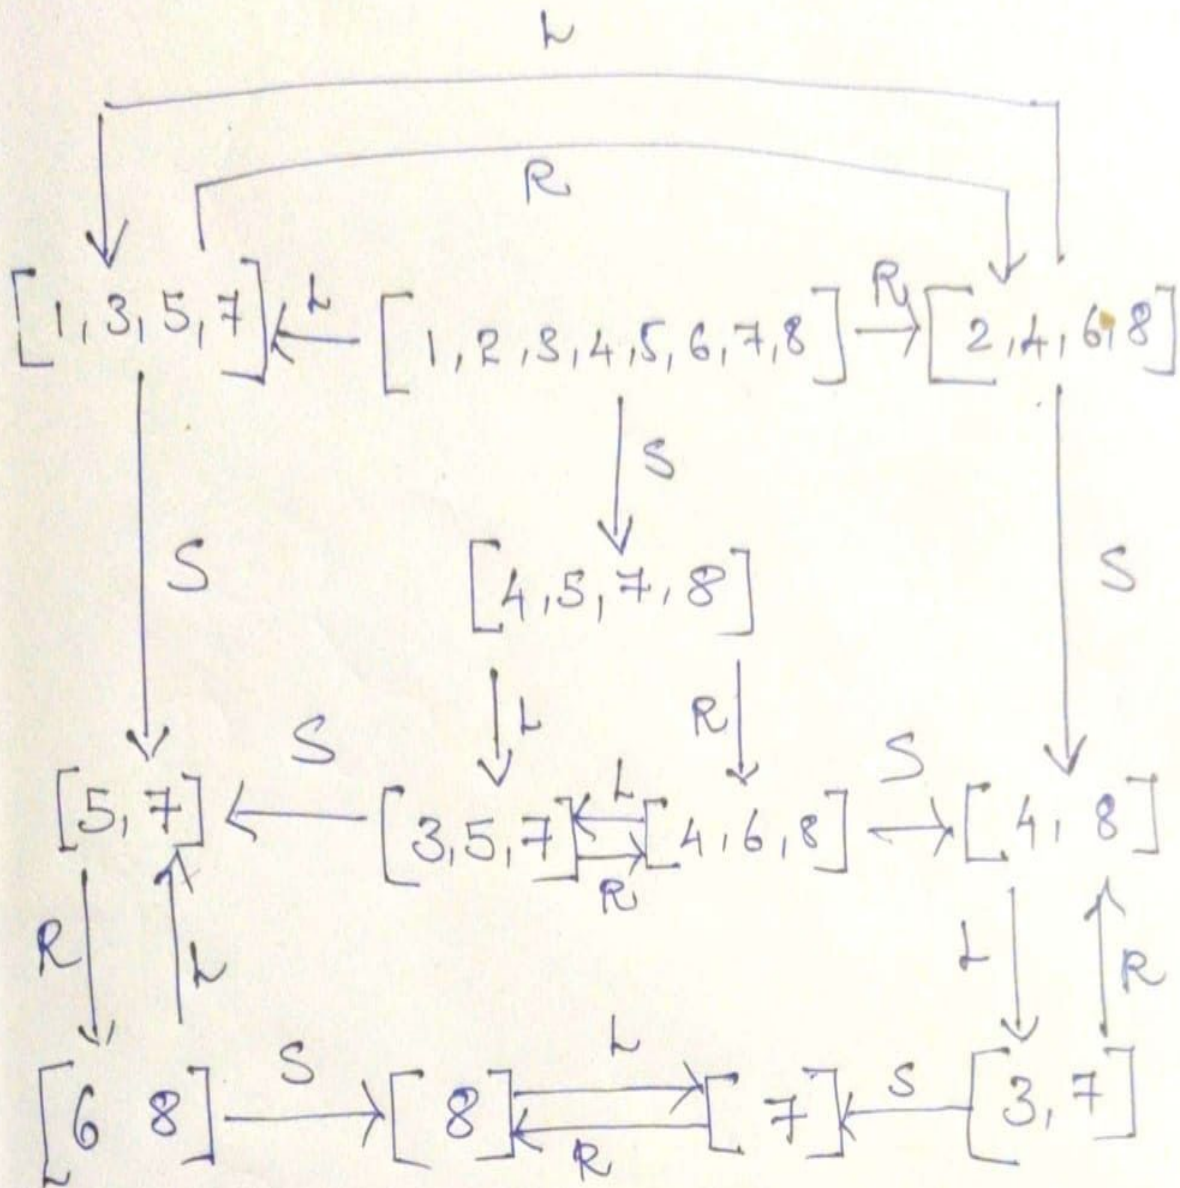 L
R
[1, 3, 5, 7] L [1, 2, 3, 4, 5, 6, 7, 8] R [2, 4, 6, 8]
S
[4, 5, 7, 8]
S S
L R
[5, 7] S [3, 5, 7] L [4, 6, 8] S [4, 8]
R
R L L R
[6 8] S [8] L [7] S [3, 7]
R